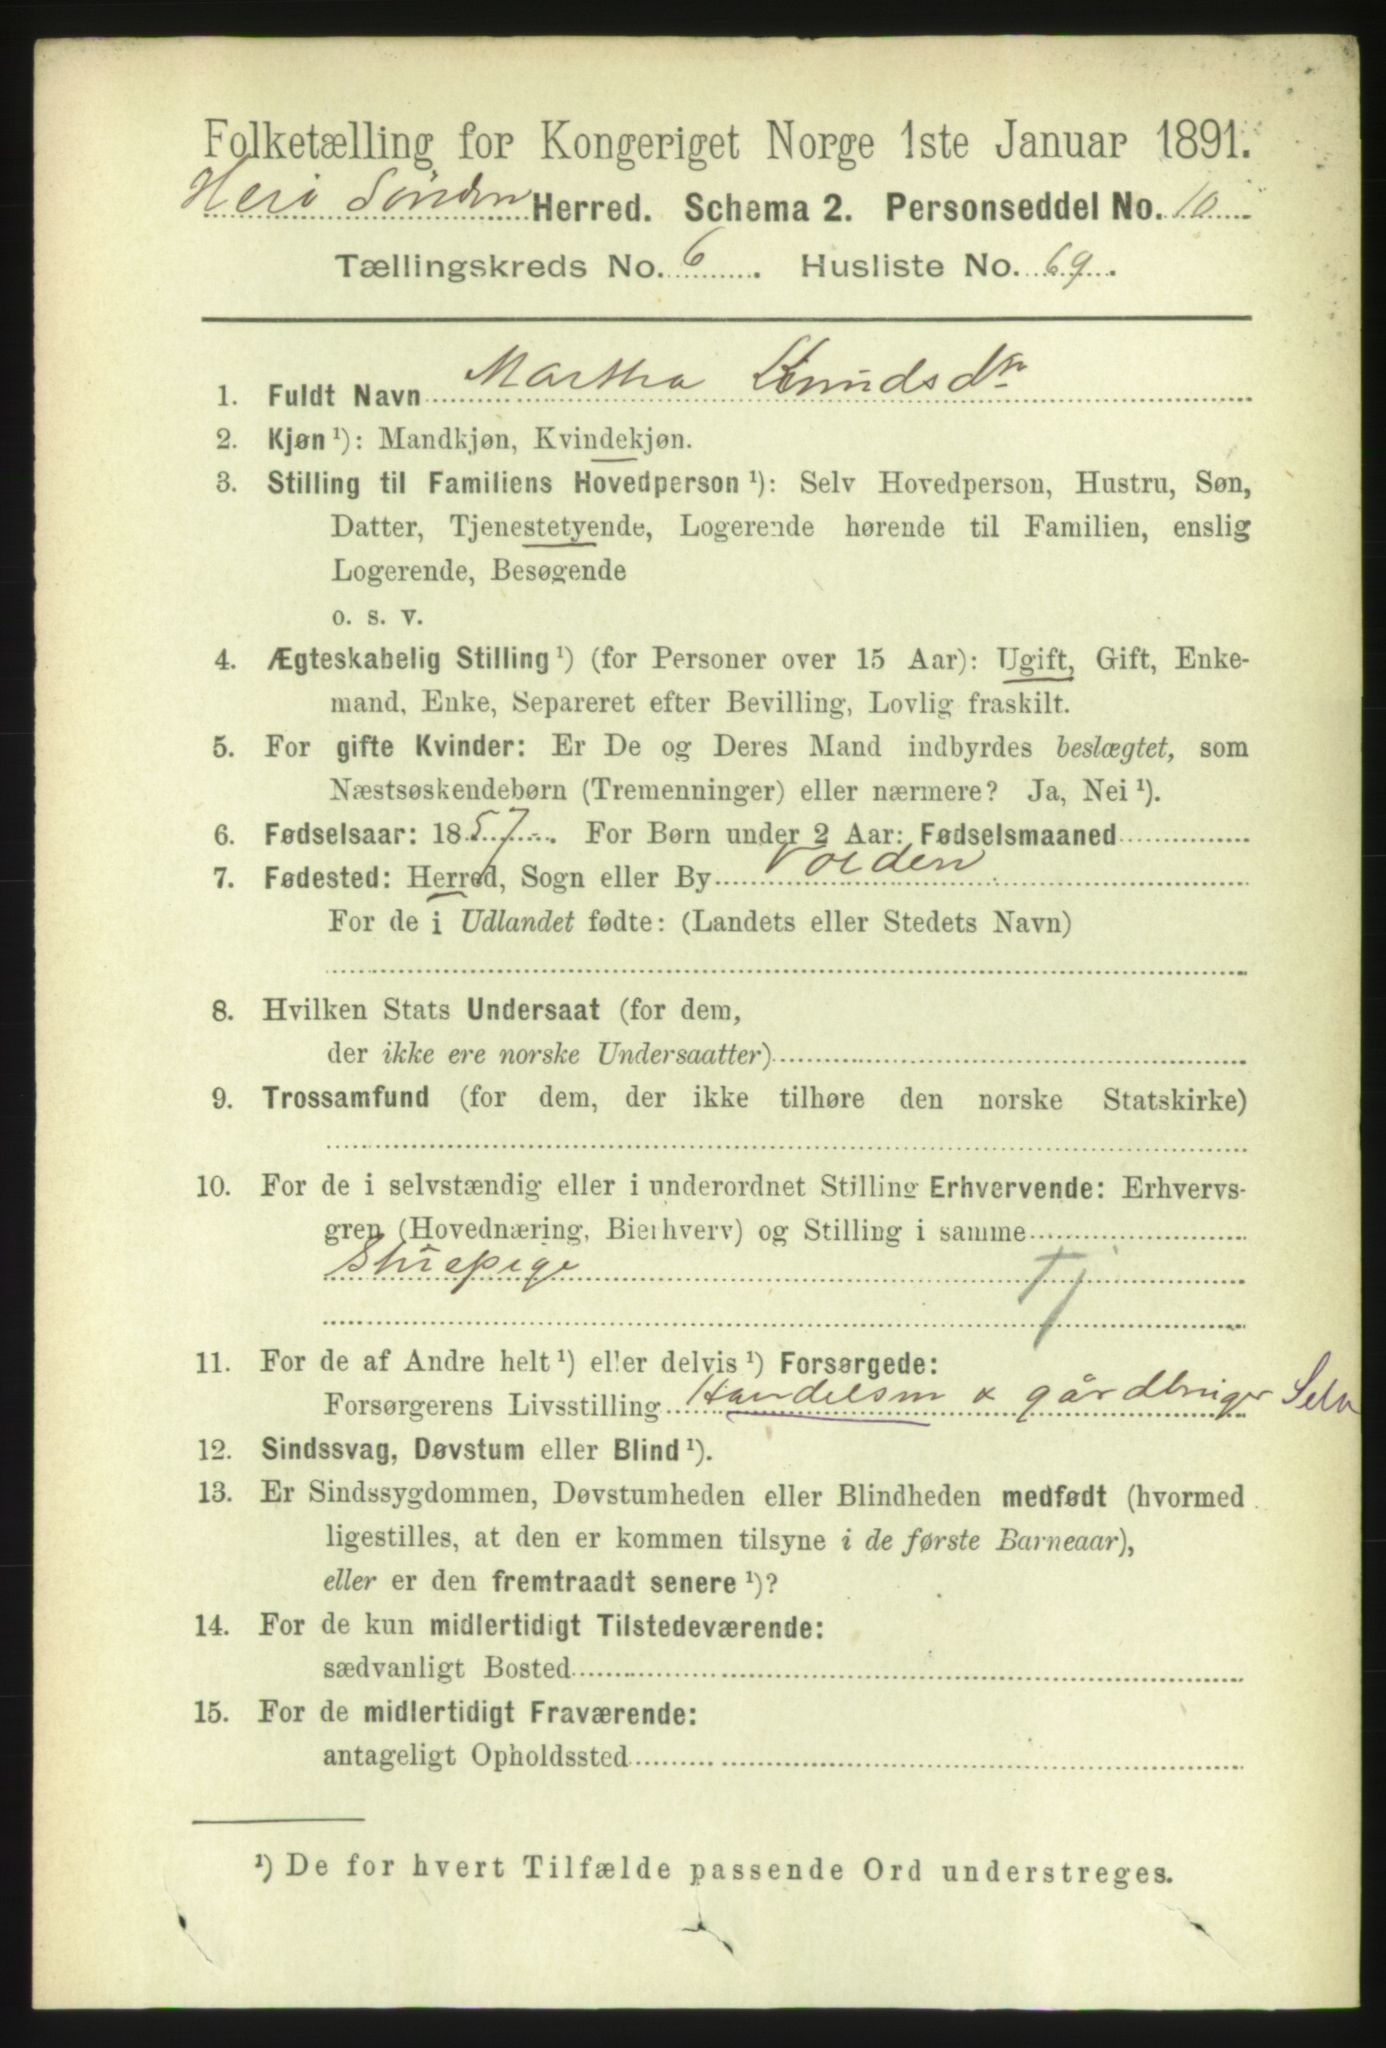 Folketælling for Kongeriget Norge 1ste Januar 1891.
Herø Søndre Herred. Schema 2. Personseddel No. 10
Tællingskreds No. 6. Husliste No. 69.
1. Fuldt Navn Martha Knudsdr
2. Kjøn ¹): Mandkjøn, Kvindekjøn.
3. Stilling til Familiens Hovedperson ¹): Selv Hovedperson, Hustru, Søn,
Datter, Tjenestetyende, Logerende hørende til Familien, enslig
Logerende, Besøgende
o. s. v.
4. Ægteskabelig Stilling ¹) (for Personer over 15 Aar): Ugift, Gift, Enke-
mand, Enke, Separeret efter Bevilling, Lovlig fraskilt.
5. For gifte Kvinder: Er De og Deres Mand indbyrdes beslægtet, som
Næstsøskendebørn (Tremenninger) eller nærmere? Ja, Nei ¹).
6. Fødselsaar: 1857. For Børn under 2 Aar: Fødselsmaaned
7. Fødested: Herred, Sogn eller By Volden
For de i Udlandet fødte: (Landets eller Stedets Navn)
8. Hvilken Stats Undersaat (for dem,
der ikke ere norske Undersaatter)
9. Trossamfund (for dem, der ikke tilhøre den norske Statskirke)
10. For de i selvstændig eller i underordnet Stilling Erhvervende: Erhvervs-
gren (Hovednæring, Bierhverv) og Stilling i samme
Stuepige Tj
11. For de af Andre helt ¹) eller delvis ¹) Forsørgede:
Forsørgerens Livsstilling Handelsm & gårdbruger Selv
12. Sindssvag, Døvstum eller Blind ¹).
13. Er Sindssygdommen, Døvstumheden eller Blindheden medfødt (hvormed
ligestilles, at den er kommen tilsyne i de første Barneaar),
eller er den fremtraadt senere ¹)?
14. For de kun midlertidigt Tilstedeværende:
sædvanligt Bosted
15. For de midlertidigt Fraværende:
antageligt Opholdssted
¹) De for hvert Tilfælde passende Ord understreges.